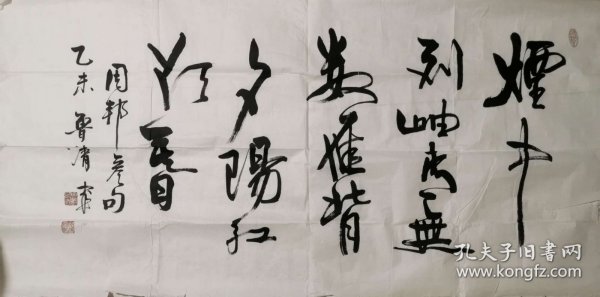 煙中
列岫青無
數雁背
夕陽紅
欲暮
周邦彥句
乙未魯
孔夫子旧书网
www.kongfz.com